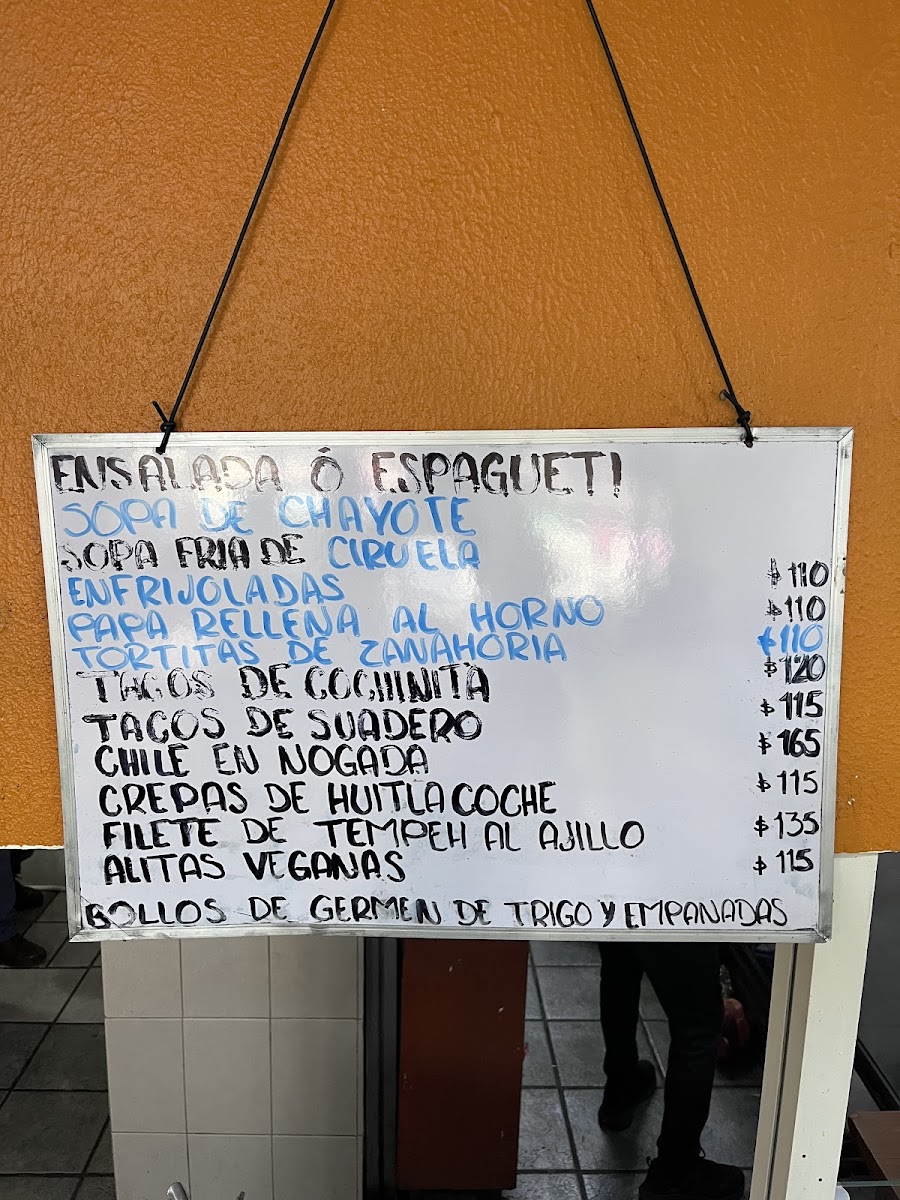 ENSALADA Ó ESPAGUETI
SOPA DE CHAYOTE
SOPA FRIA DE CIRUELA
ENFRIJOLADAS $110
PAPA RELLENA AL HORNO $110
TORTITAS DE ZANAHORIA $110
TACOS DE COCHINITA $120
TACOS DE SUADERO $115
CHILE EN NOGADA $165
CREPAS DE HUITLACOCHE $115
FILETE DE TEMPEH AL AJILLO $135
ALITAS VEGANAS $115
BOLLOS DE GERMEN DE TRIGO Y EMPANADAS